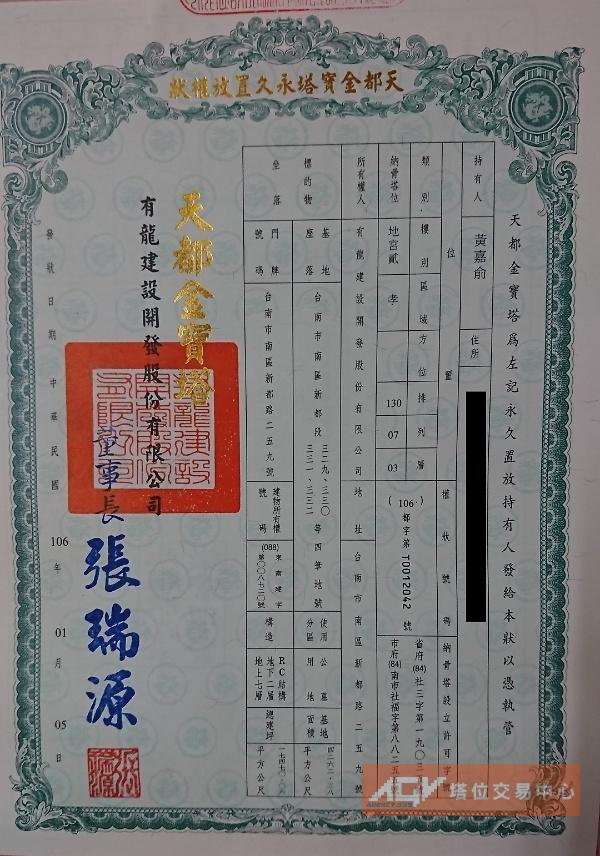 天都金寶塔永久置放權狀
天都金寶塔為左記永久置放持有人發給本狀以憑執管
持有人 黃嘉俞 住所
位置 權狀號碼 納骨塔設立許可字號
類別 樓別 區域 方位 排 列 層
納骨塔位 地宮貳 孝 130 07 03 (106)都字第T0012042號
省府(84)社三字第一九〇三
市府(84)南市社福字第八八二五
所有權人 有龍建設開發股份有限公司 地址 台南市南區新都路二五九號
標的物 坐落
基地座落 台南市南區新都段 三二九、三三〇 三三一、三三二 等四筆地號 使用分區 公墓用地 基地面積 平方公尺
門牌號碼 台南市南區新都路二五九號 建物所有權號碼 (088)東南建字 構造 RC結構 地下二層 地上七層 總建坪 平方公尺
天都金寶塔
有龍建設開發股份有限公司
董事長 張瑞源
發狀日期 中華民國 106 年 01 月 05 日
AGV 塔位交易中心